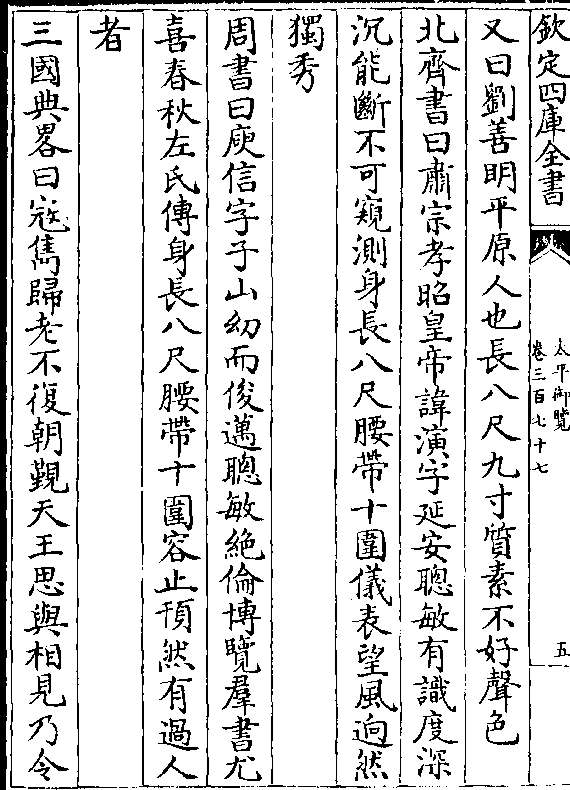 欽定四庫全書
太平御覽
卷三百七十七
五
又曰劉善明平原人也長八尺九寸質素不好聲色
北齊書曰肅宗孝昭皇帝諱演字延安聰敏有識度深
沉能斷不可窺測身長八尺腰帶十圍儀表望風逈然
獨秀
周書曰庾信字子山幼而俊邁聰敏絶倫博覽羣書尤
喜春秋左氏傳身長八尺腰帶十圍容止頹然有過人
者
三國典畧曰寇雋歸老不復朝覲天王思與相見乃令